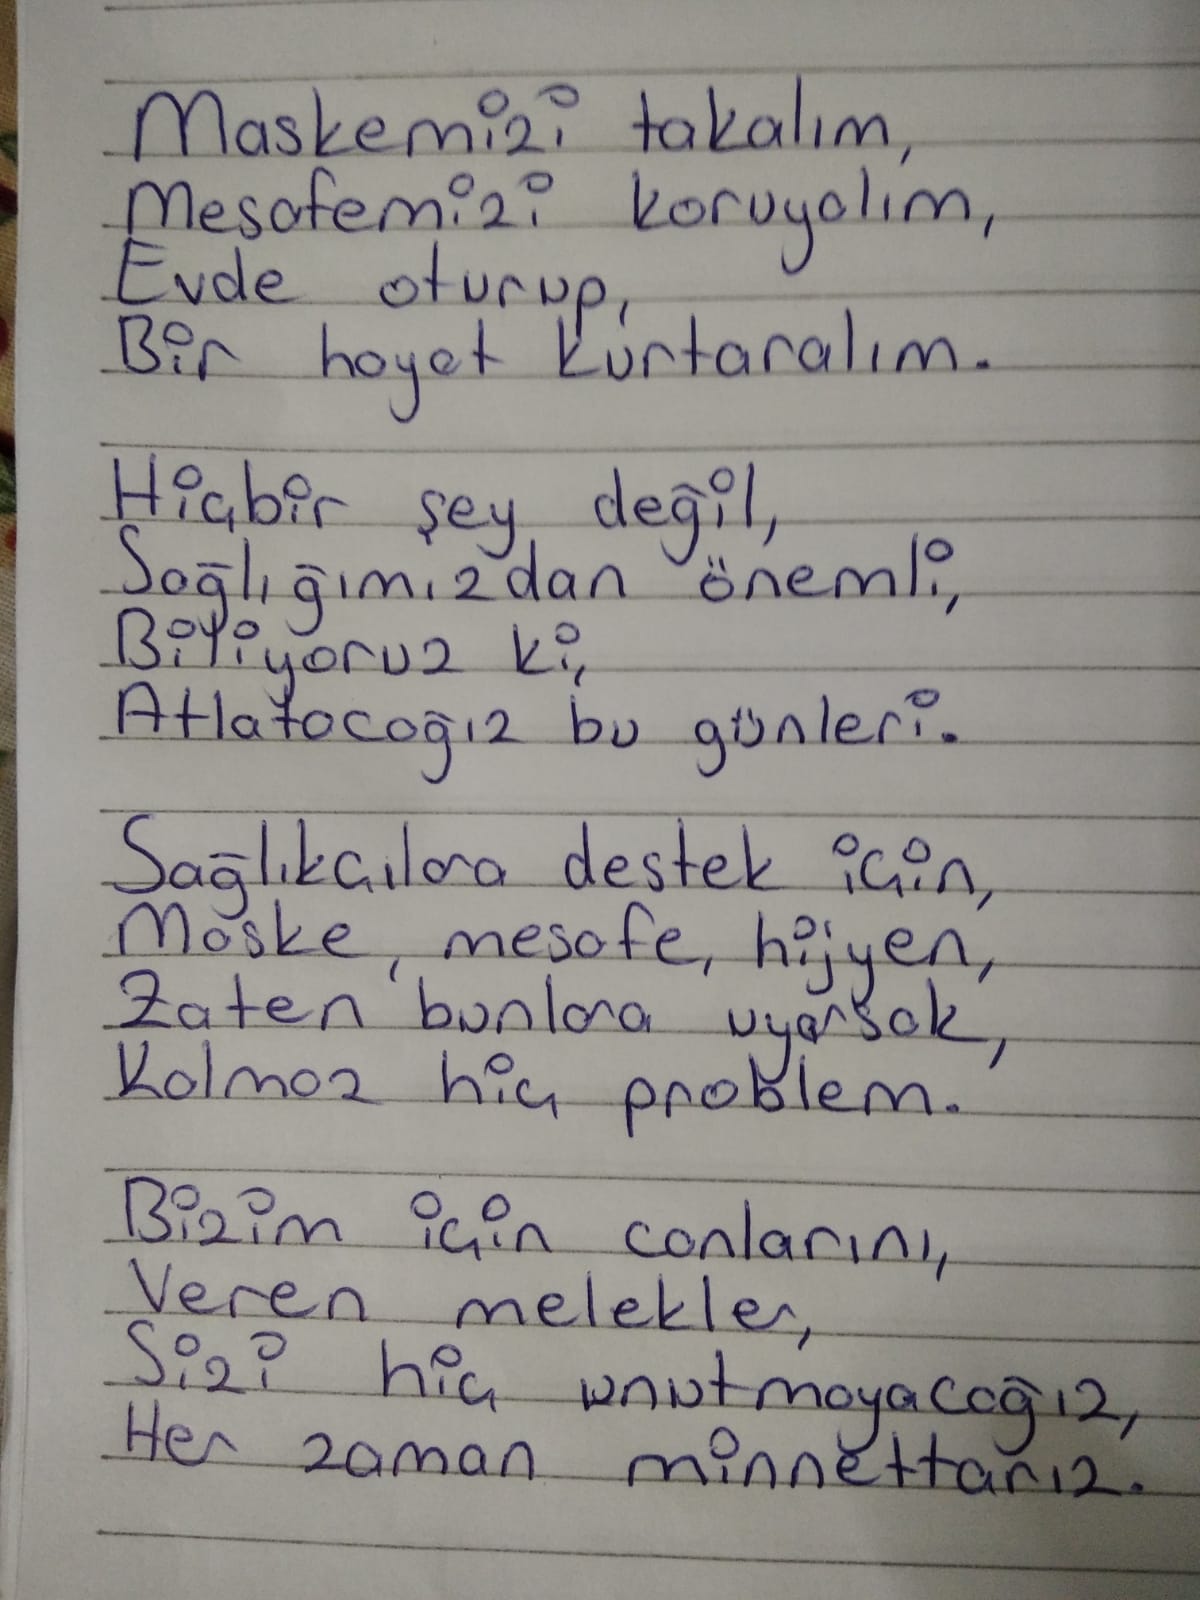 Maskemizi takalım,
Mesafemizi koruyalım,
Evde oturup,
Bir hayat kurtaralım.
Hiçbir şey değil,
Sağlığımızdan önemli,
Biliyoruz ki,
Atlatacağız bu günleri.
Sağlıkçılara destek için,
Maske, mesafe, hijyen,
Zaten bunlara uyarsak,
Kalmaz hiç problem.
Bizim için canlarını,
Veren melekler,
Sizi hiç unutmayacağız,
Her zaman minnettarız.